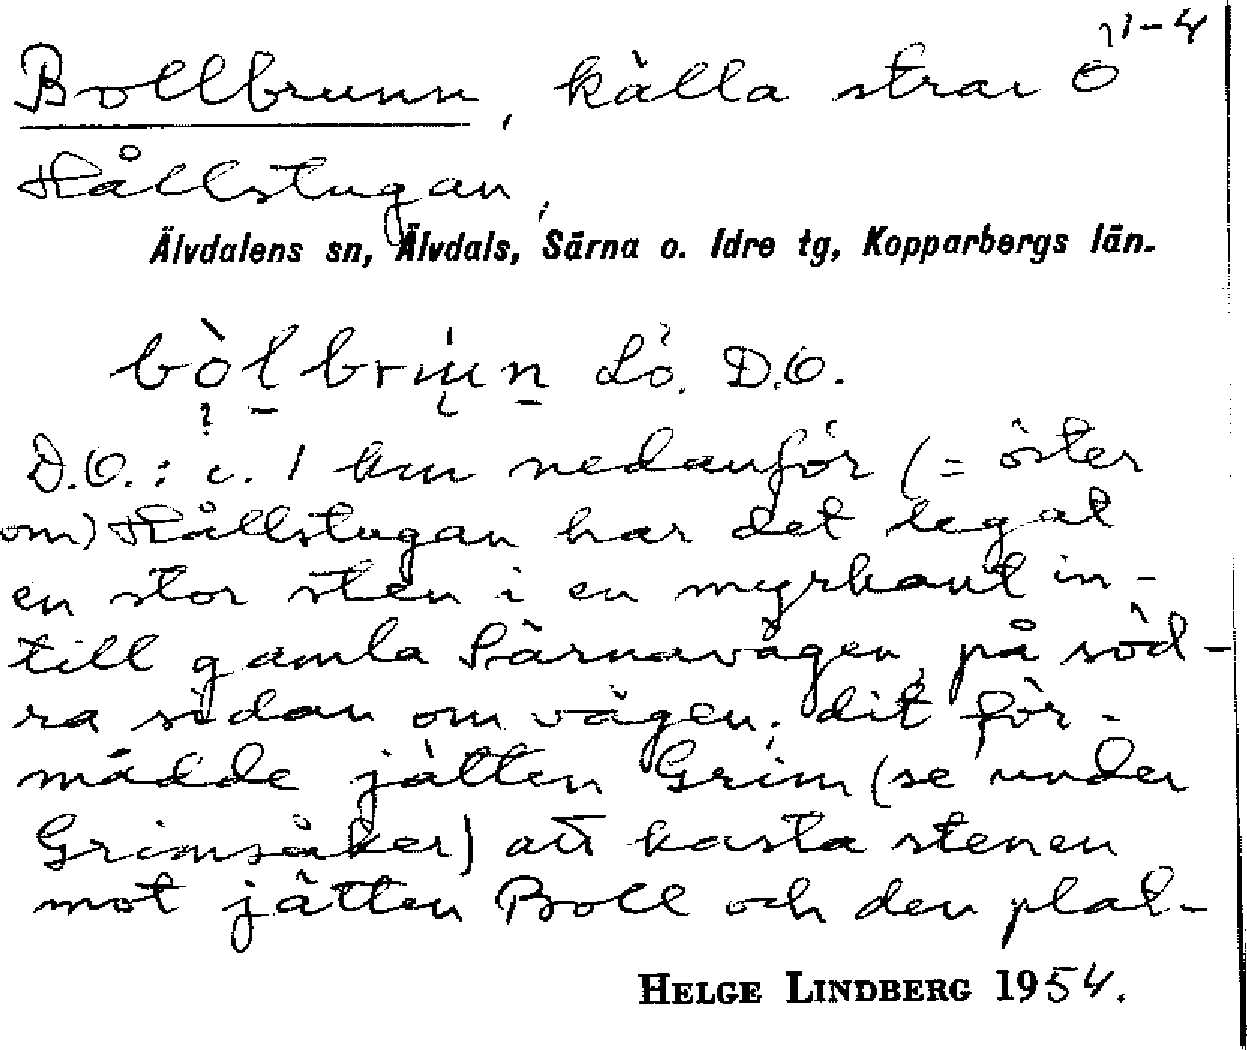 11-4
Bollbrunn, källa strax Ö
Hållstugan,
Älvdalens sn, Älvdals, Särna o. Idre tg, Kopparbergs län.
Lö. D.O.
D.O.: c. 1 km nedanför (= öster
om) Hållstugan har det legat
en stor sten i en myrkant in-
till gamla Särnavägen, på söd-
ra sidan om vägen; dit för-
mådde jätten Grim (se under
Grimsåker) att kasta stenen
mot jätten Boll och den plat-
HELGE LINDBERG 1954.